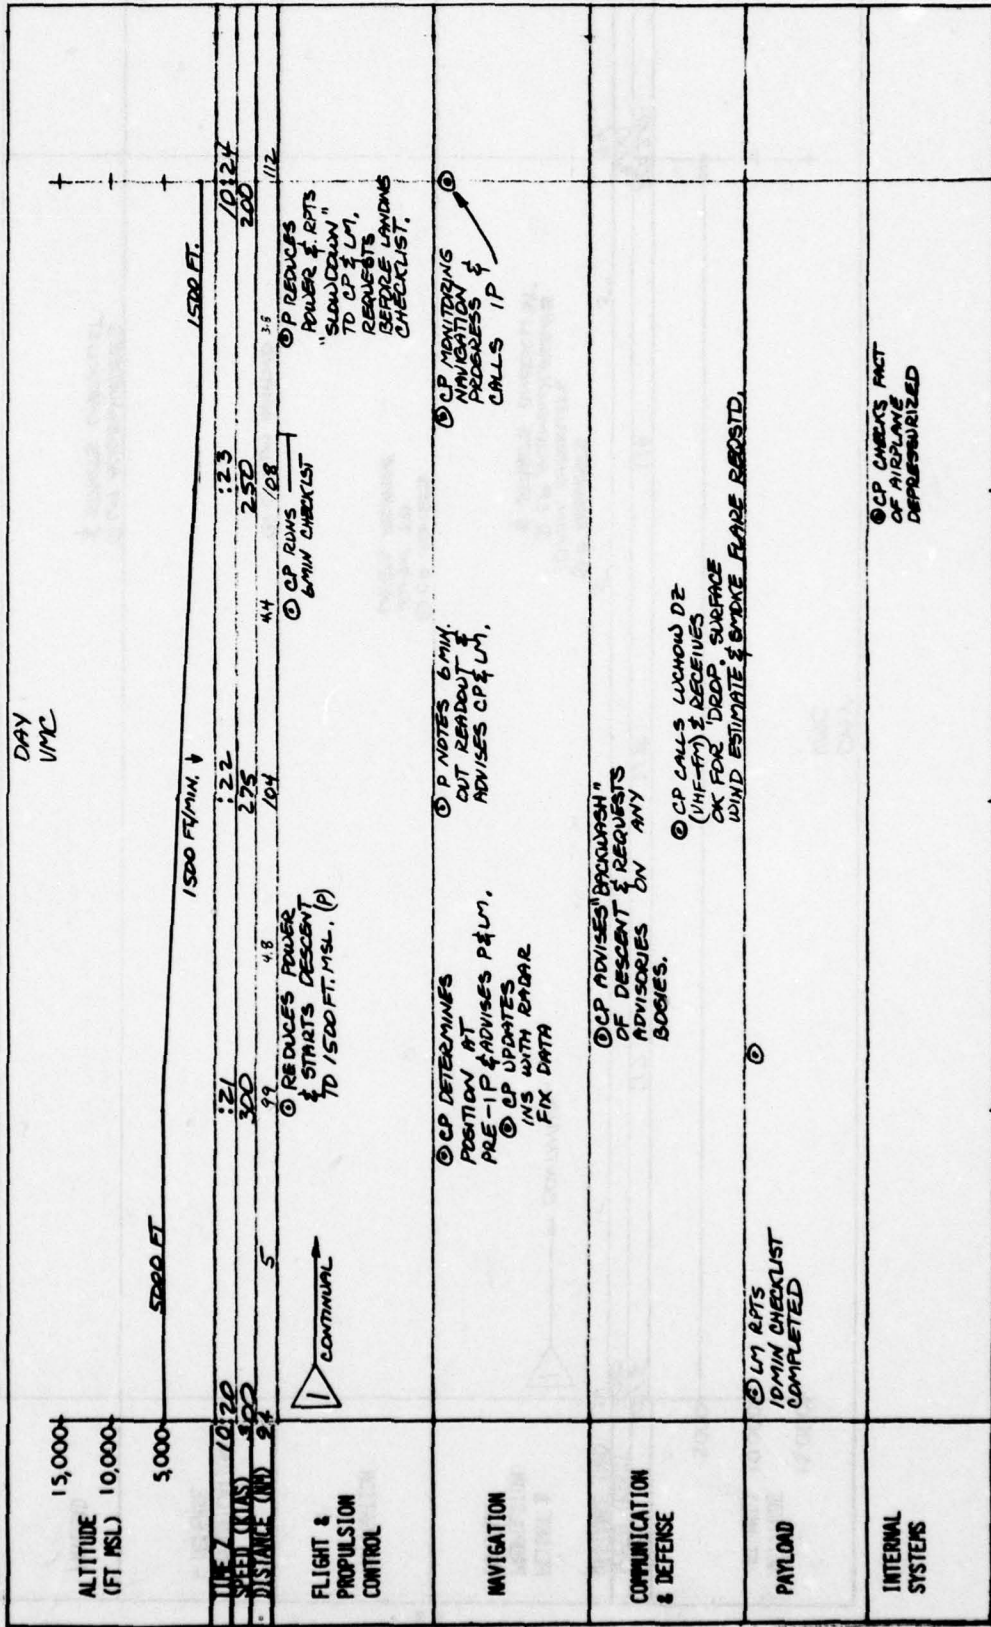 DAY
VMC
15,000
10,000
5,000
ALTITUDE
(FT MSL)
5000 FT
1500 FT/MIN.
1500 FT.
TIME Z 10:20 :21 :22 :23 10:24
SPEED (KIAS) 300 300 275 250 200
DISTANCE (NM) 94 5 99 4.8 104 4.4 108 3.8 112
FLIGHT &
PROPULSION
CONTROL
1 CONTINUAL
REDUCES POWER
& STARTS DESCENT
TO 1500 FT. MSL. (P)
CP RUNS
6 MIN CHECKLIST
P REDUCES
POWER & RPTS
"SLOWDOWN"
TO CP & LM,
REQUESTS
BEFORE LANDING
CHECKLIST.
NAVIGATION
CP DETERMINES
POSITION AT
PRE-IP & ADVISES P & LM.
CP UPDATES
INS WITH RADAR
FIX DATA
P NOTES 6 MIN.
OUT READOUT &
ADVISES CP & LM.
CP MONITORING
NAVIGATION
PROGRESS &
CALLS IP
COMMUNICATION
& DEFENSE
CP ADVISES "BACKWASH"
OF DESCENT & REQUESTS
ADVISORIES ON ANY
BOGIES.
CP CALLS LUCHOW DZ
(VHF-FM) & RECEIVES
OK FOR DROP. SURFACE
WIND ESTIMATE & SMOKE FLARE REQSTD.
PAYLOAD
LM RPTS
10 MIN CHECKLIST
COMPLETED
INTERNAL
SYSTEMS
CP CHECKS FACT
OF AIRPLANE
DEPRESSURIZED